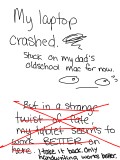 My laptop
crashed.
Stuck on my dad's
oldschool mac for now.
But in a strange
twist of fate,
my tablet seems to
work BETTER on
here.
I take it back only
handwriting works better.